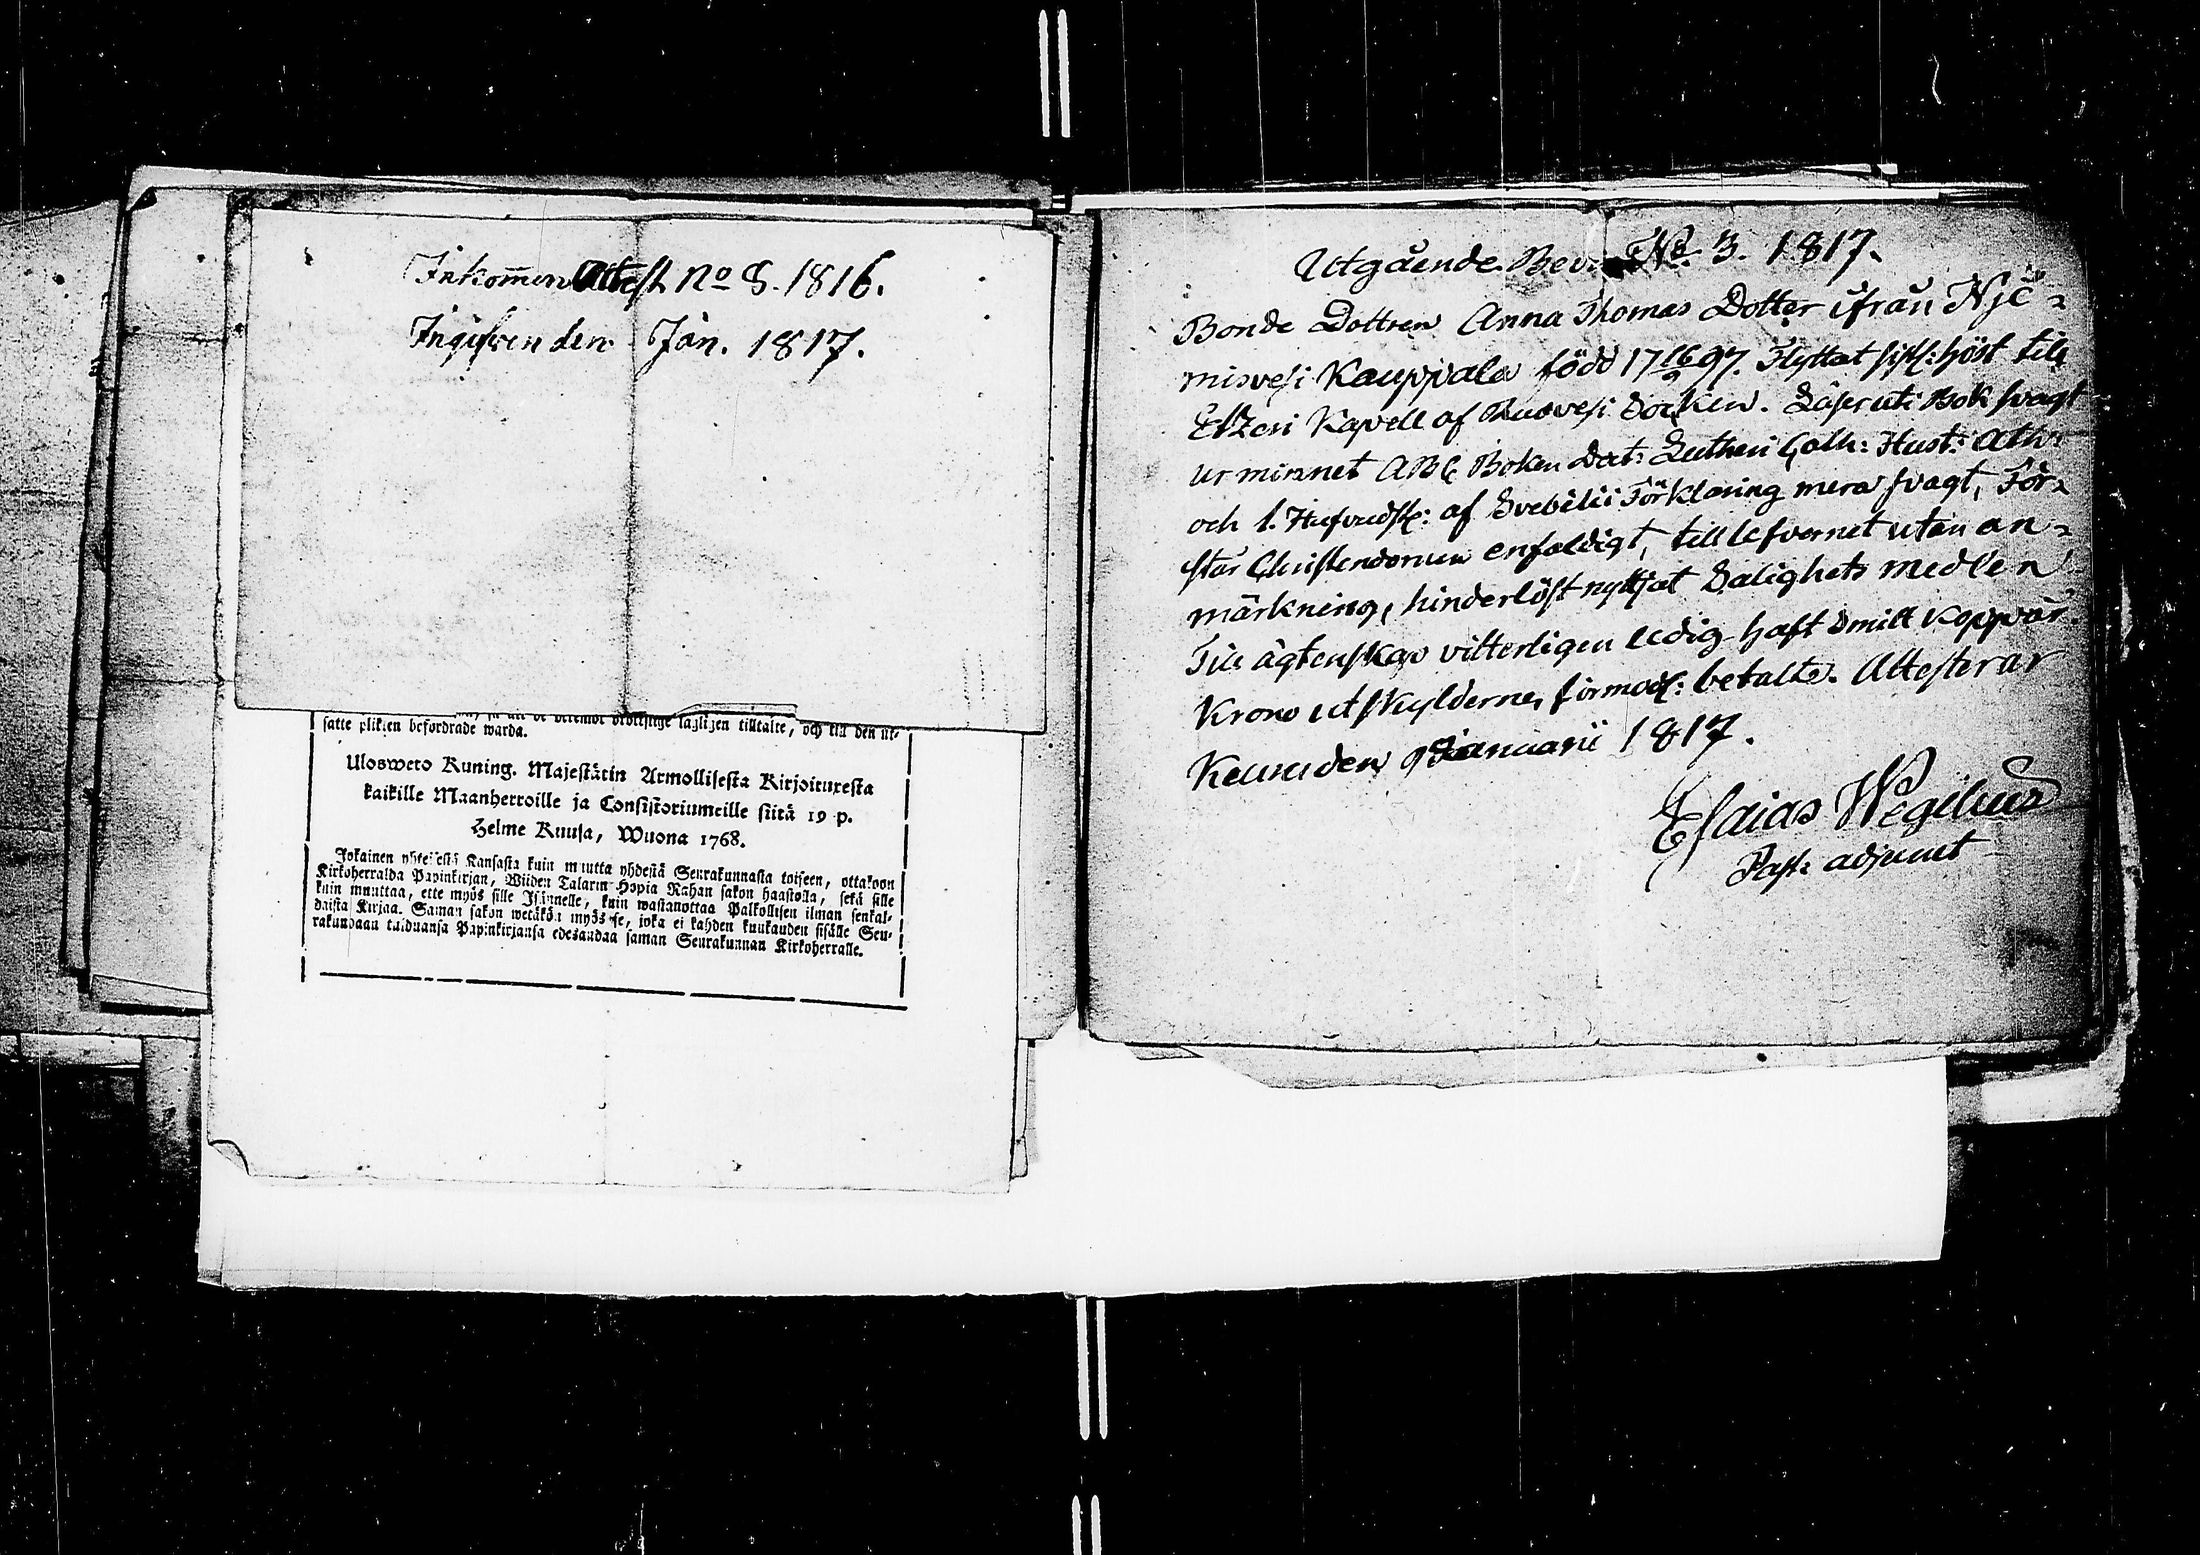 Inkommen Attest No 8. 1816.
Ingifven den Jan. 1817.
satte plikten befordrade warda.
Ulosweto Kuning. Majestätin Armollisesta Kirjoituxesta
kaikille Maanherroille ja Consistoriumeille siitä 19 p.
Helme Kuusa, Wuona 1768.
Jokainen yhteisestä Kansasta kuin muutta yhdestä Seurakunnasta toiseen, ottakoon
Kirkoherralda Papinkirjan, Wiiden Talarin Hopia Rahan sakon haastolla, sekä sille
kuin muuttaa, ette myös sille Isännelle, kuin wastanottaa Palkollisen ilman senkal-
daista Kirjaa. Saman sakon wetäkön myös se, joka ei kahden kuukauden sisälle Seu-
rakundaan tulduansa Papinkirjansa edesandaa saman Seurakunnan Kirkoherralle.
Utgående Bev. No 3. 1817.
Bonde Dottren Anna Thomas Dotter ifrån Nje-
misvesi Kauppala född 17 16/9 97. Flyttat sistl: höst till
Etzeri Kapell af Ruovesi Socken. Läser uti Bok svagt
ur minnet ABC Boken Dat: Lutheri Cath: Hust: Ath:
och 1. Hufvudst: af Svebilii Förklaring mera svagt, För-
står Christendomen enfaldigt, till lefvernet utan an-
märkning, hinderlöst nyttjat Salighets medlen
Till ägtenskap vitterligen ledig haft Smitt Koppor
Krono utskylderne förmodl: betalte. Attesterar
Keuru den 9 Januarii 1817.
Esaias Wegelius
Past: adjunct